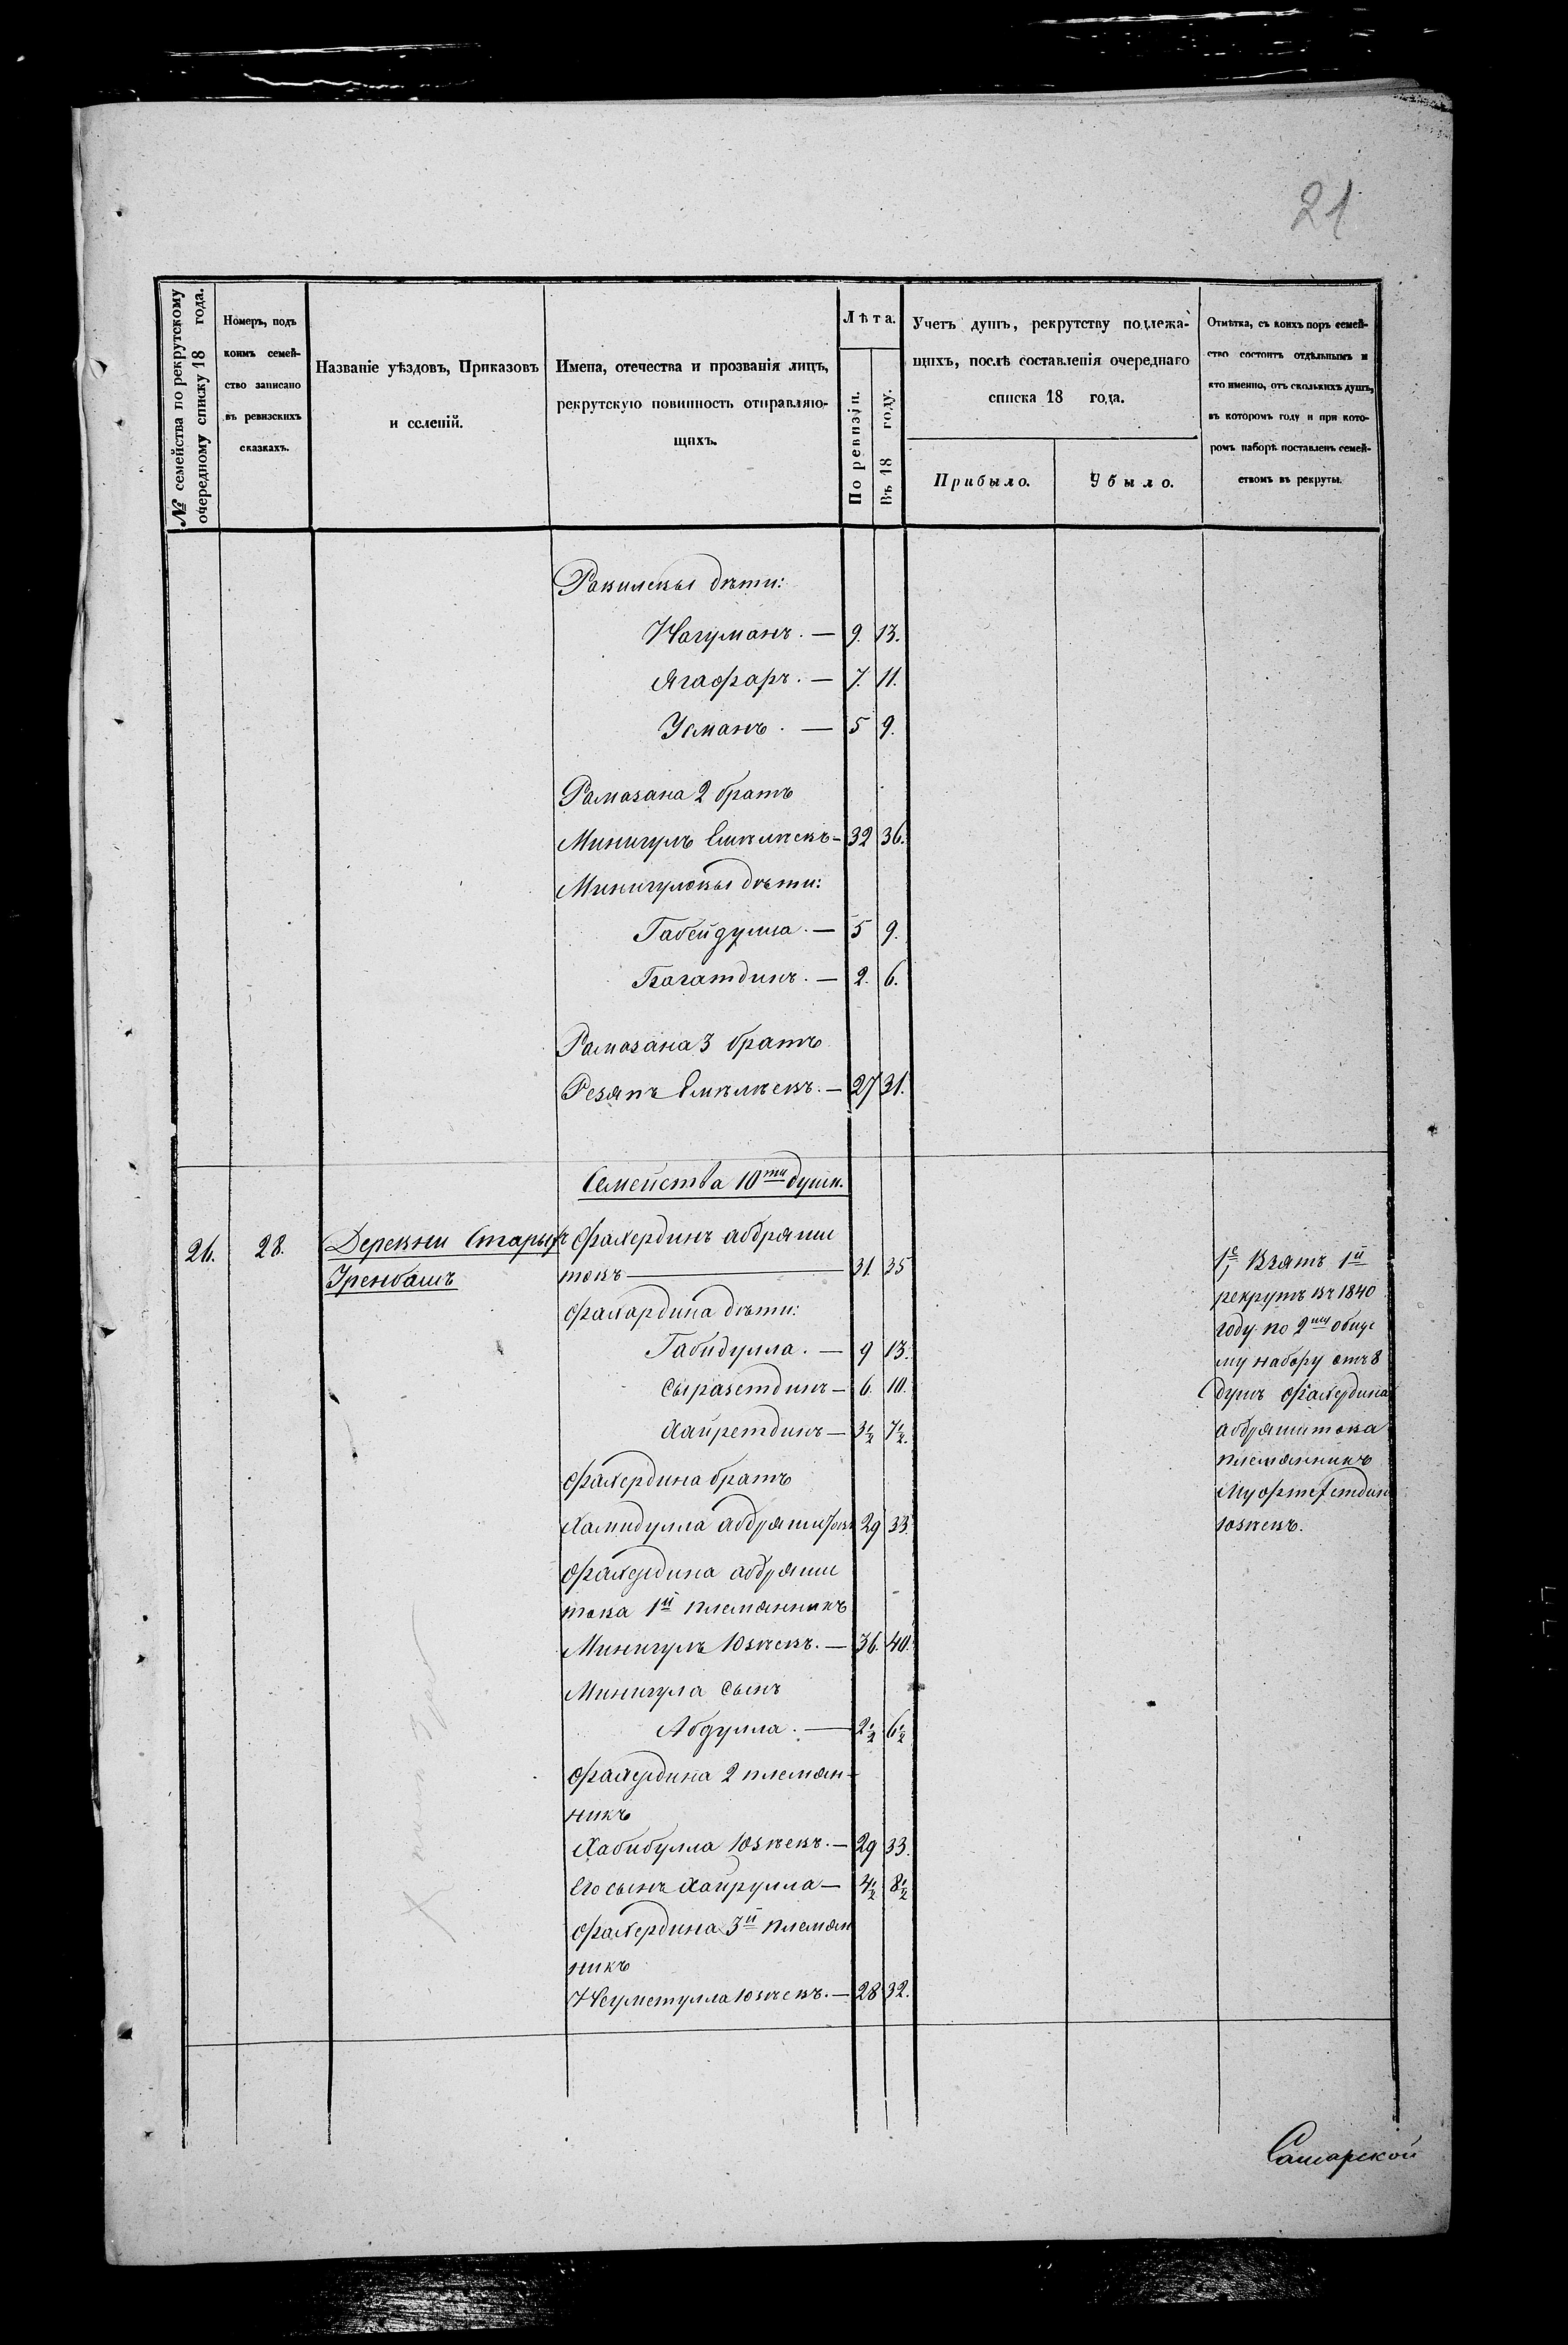 21
№ семейства по рекрутскому
очередному списку 18 года.
Номеръ, подъ
коимъ семей-
ство записано
въ ревизскихъ
сказкахъ.
Названіе уѣздовъ, Приказовъ
и селеній.
Имена, отечества и прозванія лицъ,
рекрутскую повинность отправляю-
щихъ.
Лѣта.
По ревизіи.
Въ 18 году.
Учетъ душъ, рекрутству подлежа-
щихъ, послѣ составленія очереднаго
списка 18 года.
Прибыло.
Убыло.
Отмѣтка, съ коихъ поръ семей-
ство состоитъ отдѣльнымъ и
кто именно, отъ сколькихъ душъ,
въ которомъ году и при кото-
ромъ наборѣ поставленъ семей-
ствомъ въ рекруты.
дѣти:
Нагуманъ. — 9. 13.
Ягафаръ. — 7. 11.
Усманъ. — 5 9.
Рамазана 2 братъ
Минигулъ — 32 36.
Минигуловы дѣти:
Габейдулла. — 5 9.
Багатдинъ. — 2. 6.
Рамазана 3 братъ
Резяпъ — 27 31.
Семейства 10ти душн.
26. 28. Деревни Старыхъ Фахердинъ абдряши
Зренбашъ токъ — 31. 35
Фахардина дѣти:
Габидулла. — 9 13.
Сыразетдинъ — 6. 10.
Хайретдинъ — 3½ 7½.
Фахердина братъ
Хамидулла абдряшитокъ 29 33.
Фахердина абдряши
това 1й племянникъ
Минигулъ Юзѣевъ. — 36. 40.
Минигула сынъ
Абдулла. — 2½ 6½
Фахердина 2 племян-
никъ
Хабибулла Юзѣевъ. — 29 33.
Его сынъ Хайрулла — 4½ 8½
Фахердина 3й племян
никъ
Негметулла Юзѣевъ. — 28 32.
1е, Взятъ 1й
рекрутъ въ 1840
году по 2му обще
му набору отъ 8
душъ Фахердина
абдряшитова
племянникъ
Юзѣевъ.
Самарской